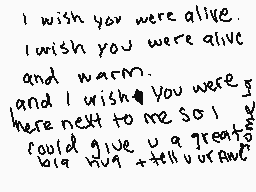 I wish you were alive.
I wish you were alive
and warm.
and I wish you were
here next to me so I
could give u a great
big hug + tell u ur awesome